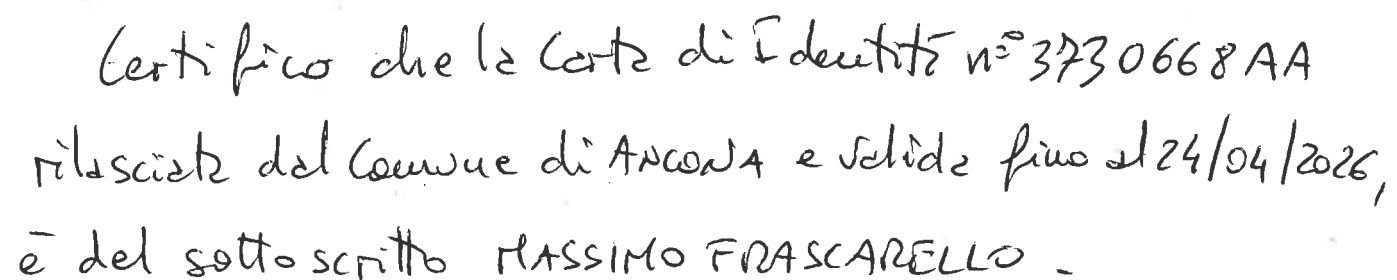 Certifico che la Carta di Identità n° 3730668AA
rilasciata dal Comune di ANCONA e valida fino al 24/04/2026,
è del sottoscritto MASSIMO FRASCARELLO.